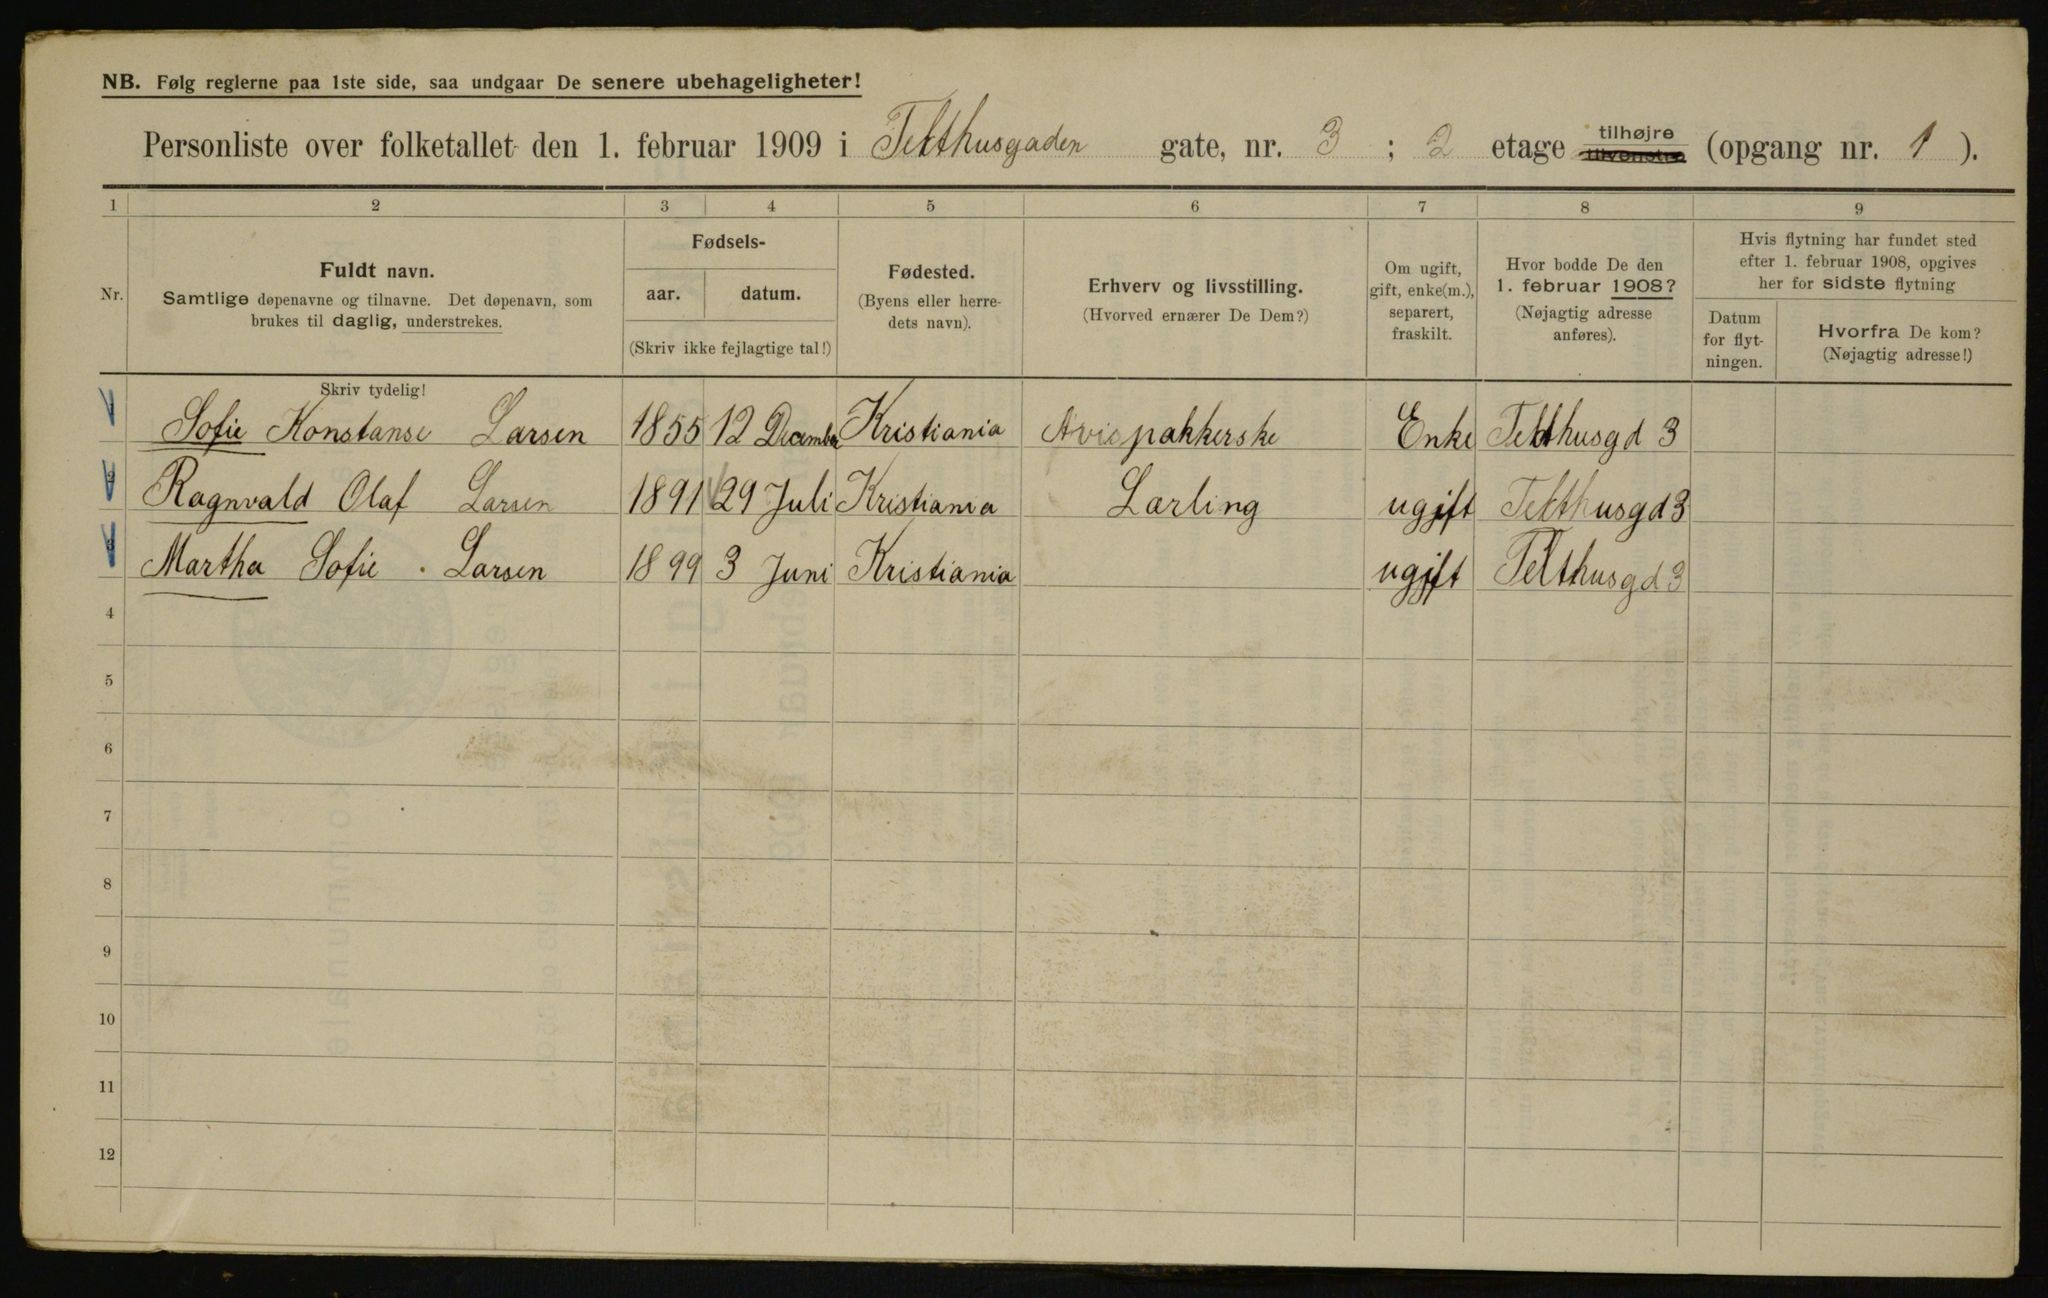 NB. Følg reglerne paa 1ste side, saa undgaar De senere ubehageligheter!
Personliste over folketallet den 1. februar 1909 i Telthusgaden gate, nr. 3 ; 2 etage tilhøjre tilvenstre (opgang nr. 1 ).
1 2 3 4 5 6 7 8 9
Nr.
Fuldt navn.
Samtlige døpenavne og tilnavne. Det døpenavn, som
brukes til daglig, understrekes.
Fødsels-
aar. datum.
(Skriv ikke fejlagtige tal!)
Fødested.
(Byens eller herre-
dets navn).
Erhverv og livsstilling.
(Hvorved ernærer De Dem?)
Om ugift,
gift, enke(m.),
separert,
fraskilt.
Hvor bodde De den
1. februar 1908?
(Nøjagtig adresse
anføres).
Hvis flytning har fundet sted
efter 1. februar 1908, opgives
her for sidste flytning
Datum
for flyt-
ningen.
Hvorfra De kom?
(Nøjagtig adresse!)
Skriv tydelig!
1 Sofie Konstanse Larsen 1855 12 December Kristiania Avispakkerske Enke Telthusgd 3
2 Ragnvald Olaf Larsen 1891 29 Juli Kristiania Lærling ugift Telthusgd 3
3 Martha Sofie Larsen 1899 3 Juni Kristiania ugift Telthusgd 3
4
5
6
7
8
9
10
11
12